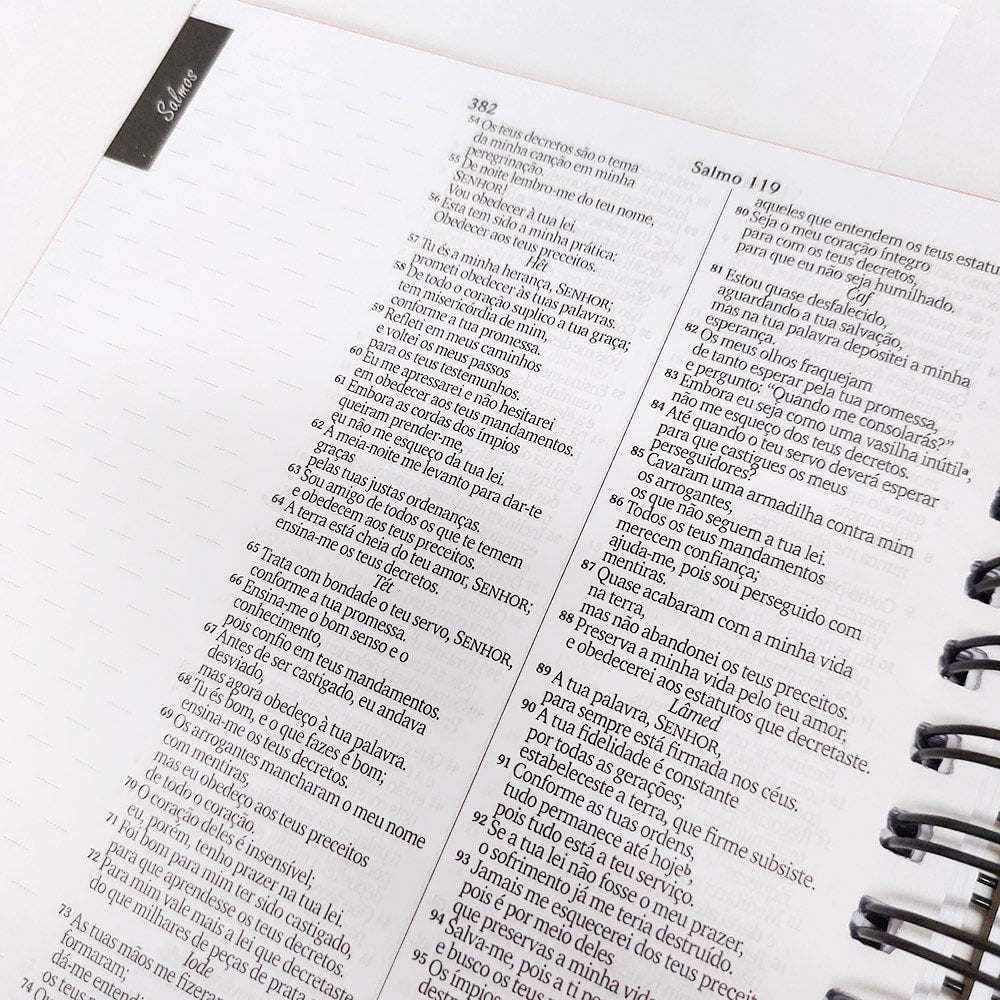 Salmos
382
Salmo 119
54 Os teus decretos são o tema
da minha canção em minha
peregrinação.
55 De noite lembro-me do teu nome,
SENHOR!
Vou obedecer à tua lei.
56 Esta tem sido a minha prática:
Obedecer aos teus preceitos.
Hêt
57 Tu és a minha herança, SENHOR;
prometi obedecer às tuas palavras.
58 De todo o coração suplico a tua graça;
tem misericórdia de mim,
conforme a tua promessa.
59 Refleti em meus caminhos
e voltei os meus passos
para os teus testemunhos.
60 Eu me apressarei e não hesitarei
em obedecer aos teus mandamentos.
61 Embora as cordas dos ímpios
queiram prender-me,
eu não me esqueço da tua lei.
62 À meia-noite me levanto para dar-te
graças
pelas tuas justas ordenanças.
63 Sou amigo de todos os que te temem
e obedecem aos teus preceitos.
64 A terra está cheia do teu amor, SENHOR;
ensina-me os teus decretos.
Tét
65 Trata com bondade o teu servo, SENHOR,
conforme a tua promessa.
66 Ensina-me o bom senso e o
conhecimento,
pois confio em teus mandamentos.
67 Antes de ser castigado, eu andava
desviado,
mas agora obedeço à tua palavra.
68 Tu és bom, e o que fazes é bom;
ensina-me os teus decretos.
69 Os arrogantes mancharam o meu nome
com mentiras,
mas eu obedeço aos teus preceitos
de todo o coração.
70 O coração deles é insensível;
eu, porém, tenho prazer na tua lei.
71 Foi bom para mim ter sido castigado,
para que aprendesse os teus decretos.
72 Para mim vale mais a lei que decretaste
do que milhares de peças de prata
Iode
73 As tuas mãos me fizeram
formaram;
dá-me
74
aqueles que entendem os teus
80 Seja o meu coração íntegro
para com os teus decretos,
para que eu não seja humilhado.
Caf
81 Estou quase desfalecido,
aguardando a tua salvação,
mas na tua palavra depositei a minha
esperança.
82 Os meus olhos fraquejam
de tanto esperar pela tua promessa,
e pergunto: “Quando me consolarás?”
83 Embora eu seja como uma vasilha inútilª,
não me esqueço dos teus decretos.
84 Até quando o teu servo deverá esperar
para que castigues os meus
perseguidores?
85 Cavaram uma armadilha contra mim
os arrogantes,
os que não seguem a tua lei.
86 Todos os teus mandamentos
merecem confiança;
ajuda-me, pois sou perseguido com
mentiras.
87 Quase acabaram com a minha vida
na terra,
mas não abandonei os teus preceitos.
88 Preserva a minha vida pelo teu amor,
e obedecerei aos estatutos que decretaste.
Lâmed
89 A tua palavra, SENHOR,
para sempre está firmada nos céus.
90 A tua fidelidade é constante
por todas as gerações;
estabeleceste a terra, que firme subsiste.
91 Conforme as tuas ordens,
tudo permanece até hojeᵇ,
pois tudo está a teu serviço.
92 Se a tua lei não fosse o meu prazer,
o sofrimento já me teria destruído.
93 Jamais me esquecerei dos teus
pois é por meio deles
que preservas a minha vida
94 Salva-me, pois a ti
e busco os teus
95 Os ímpios